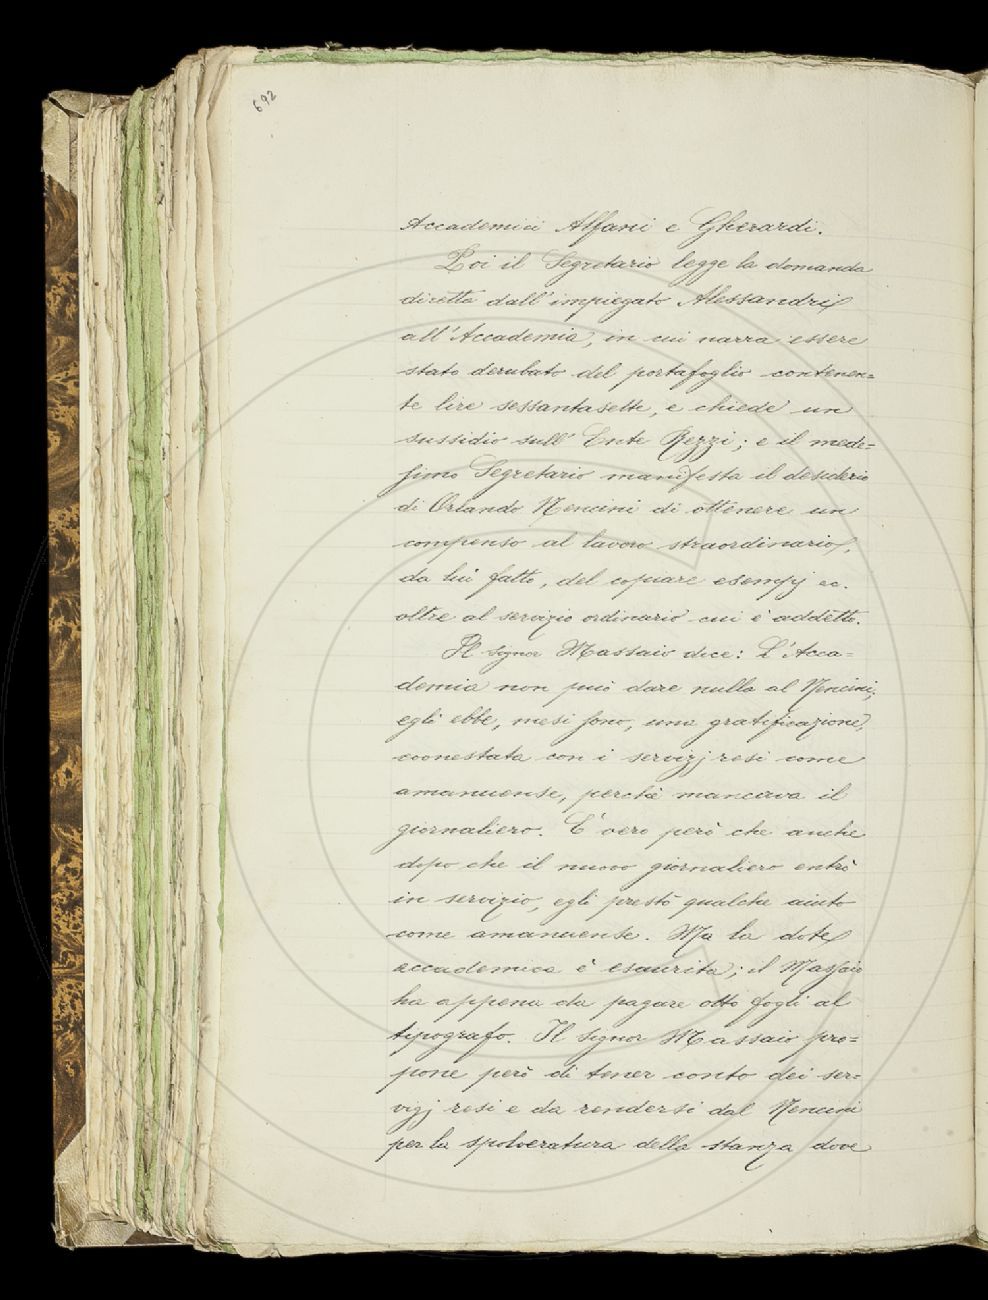 692
Accademici Alfani e Gherardi.
Poi il Segretario legge la domanda
diretta dall'impiegato Alessandri
all'Accademia, in cui narra essere
stato derubato del portafoglio contenen=
te lire sessantasette, e chiede un
sussidio sull'Ente Rezzi; e il mede=
simo Segretario manifesta il desiderio
di Orlando Nencini di ottenere un
compenso al lavoro straordinario,
da lui fatto, del copiare esempj ec.
oltre al servizio ordinario cui è addetto.
Il signor Massaio dice: L'Acca=
demia non può dare nulla al Nencini;
egli ebbe, mesi sono, una gratificazione,
coonestata con i servizj resi come
amanuense, perchè mancava il
giornaliero. E' vero però che anche
dopo che il nuovo giornaliero entrò
in servizio, egli prestò qualche aiuto
come amanuense. Ma la dote
accademica è esaurita; il Massaio
ha appena da pagare otto fogli al
tipografo. Il Signor Massaio pro=
pone però di tener conto dei ser=
vizj resi e da rendersi dal Nencini
per la spolveratura della stanza dove